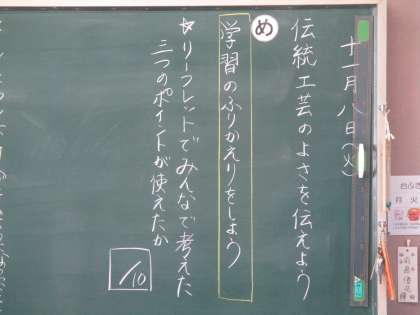 十一月八日(火)
伝統工芸のよさを伝えよう
め
学習のふりかえりをしよう
☆リーフレットでみんなで考えた
三つのポイントが使えたか
/10
月 火